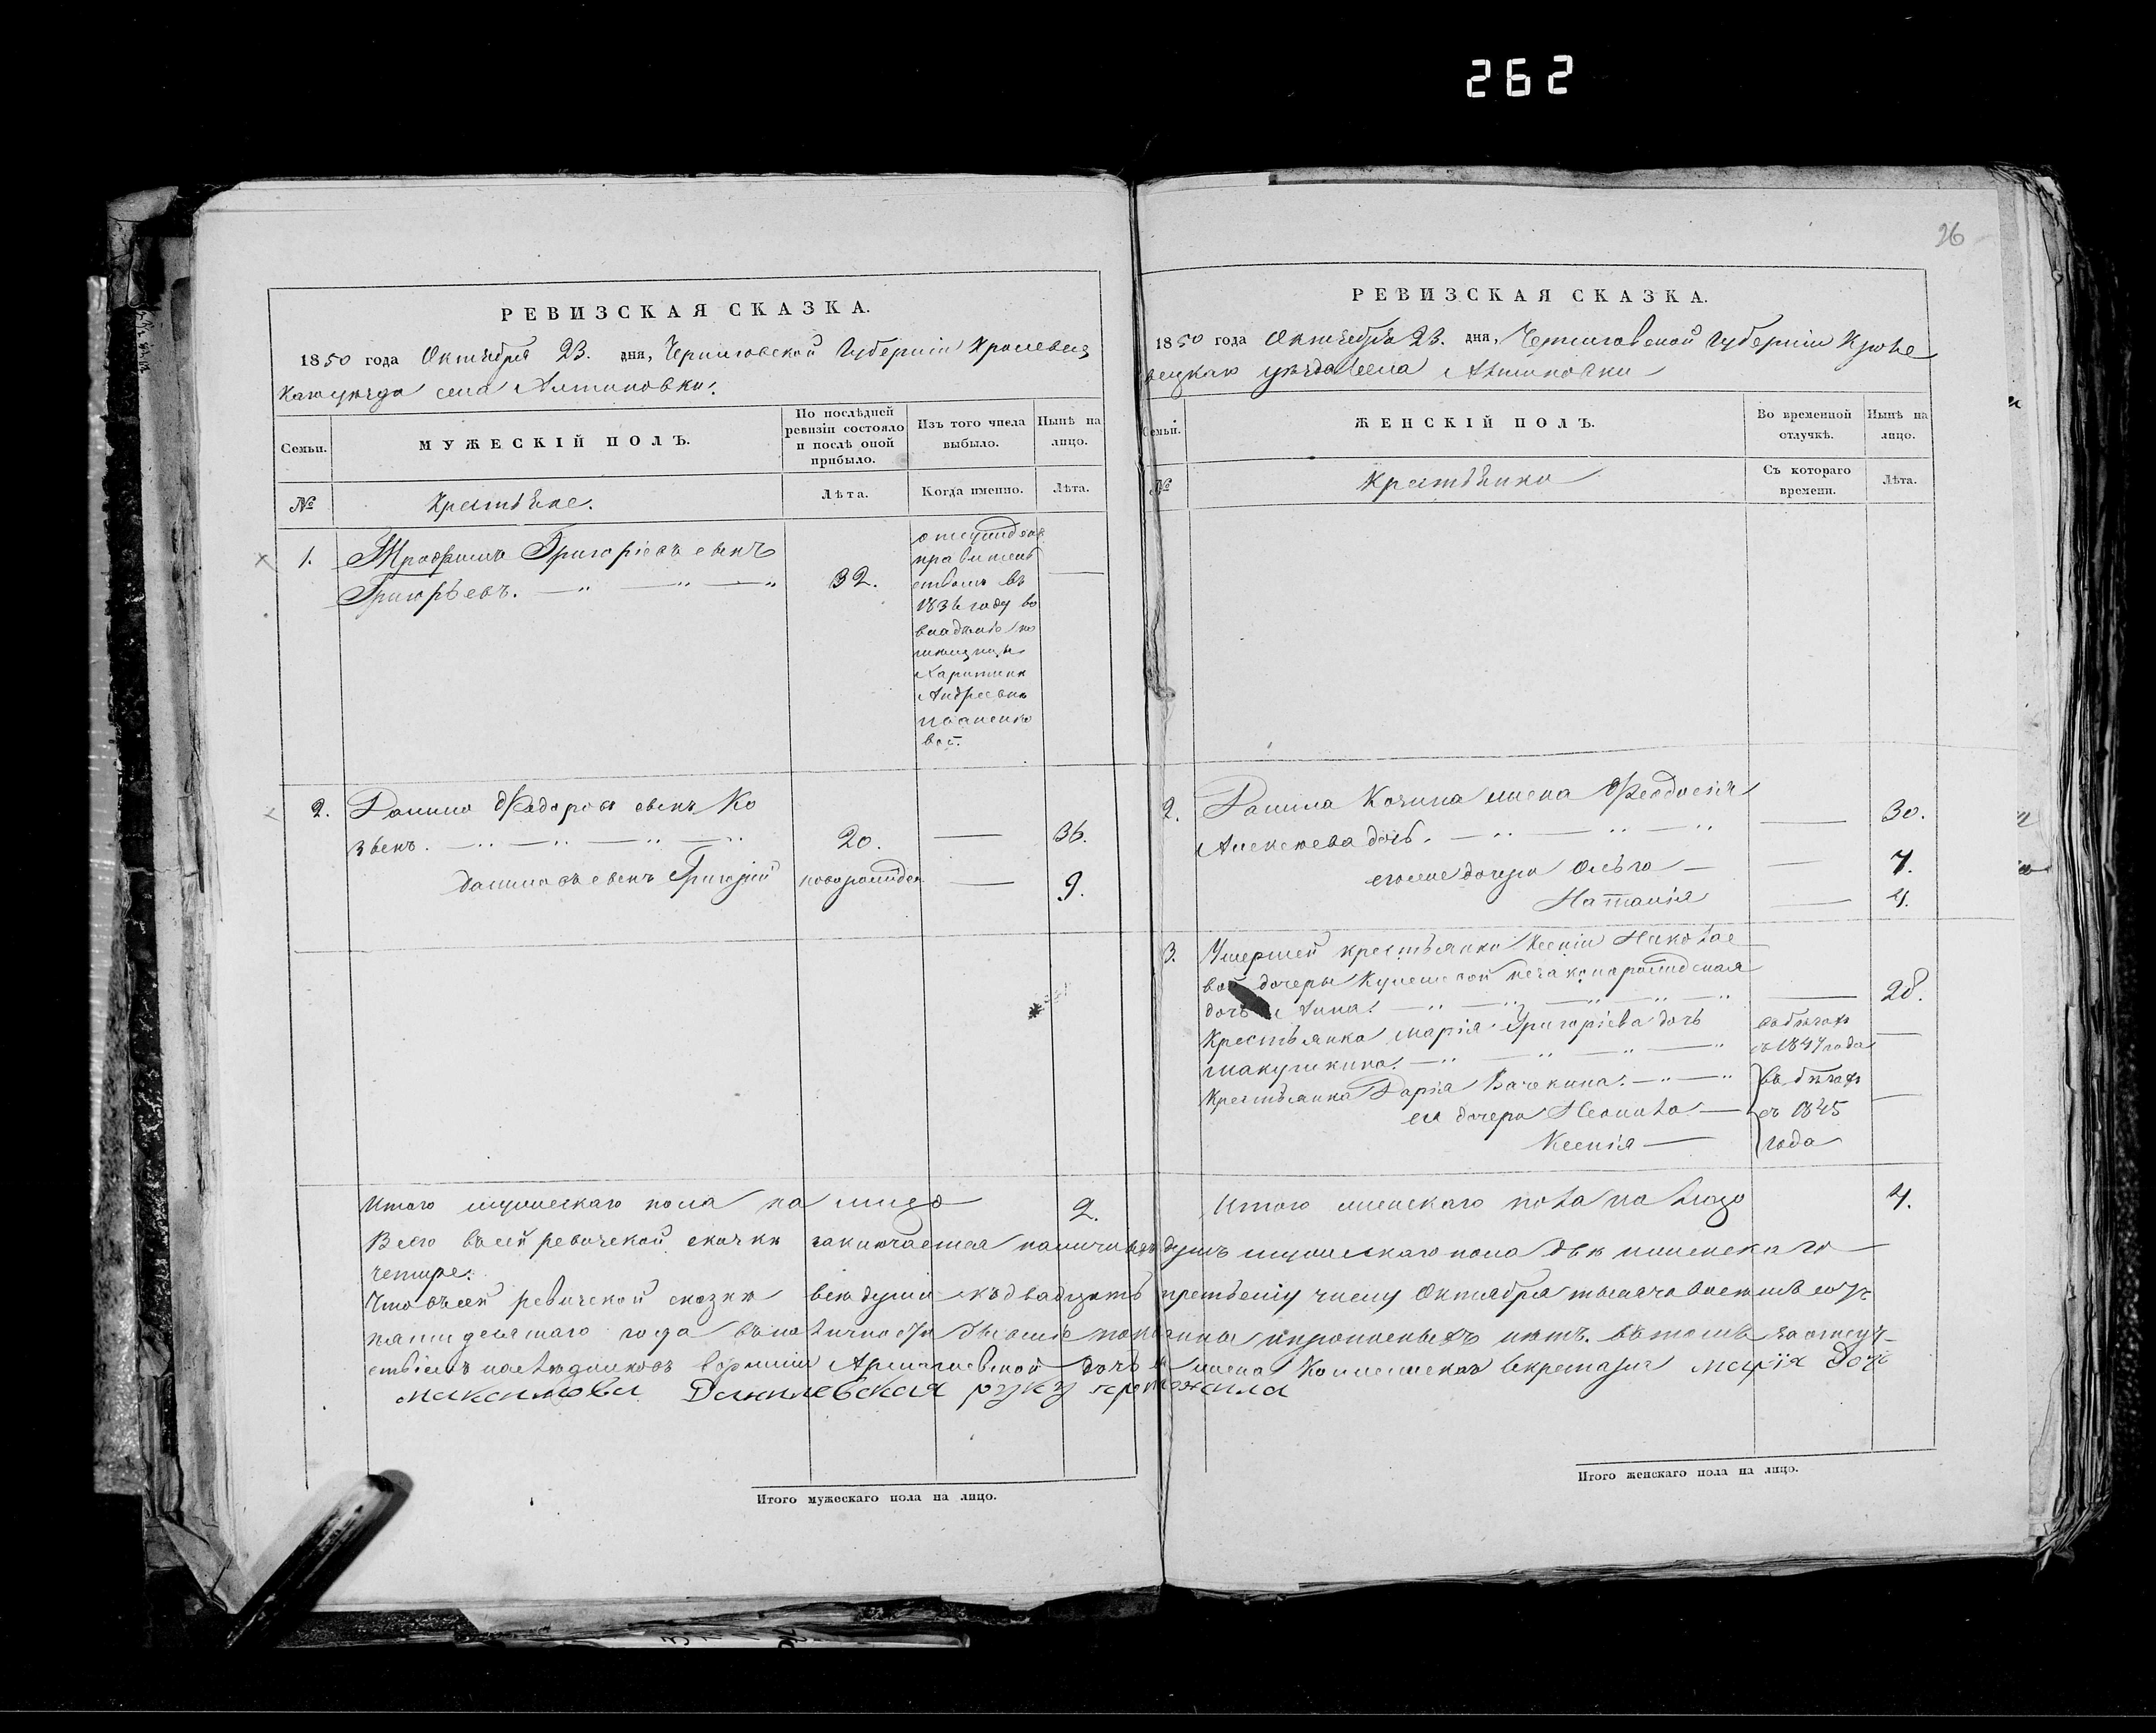 262
26
РЕВИЗСКАЯ СКАЗКА.
1850 года Октября 23. дня, Черниговской Губерніи Кролевец
каго уезда села Алтиновки.
Семьи.
МУЖЕСКІЙ ПОЛЪ.
По послѣдней ревизіи состояло и послѣ оной прибыло.
Изъ того числа выбыло.
Нынѣ на лицо.
№
Крестьяне.
Лѣта.
Когда именно.
Лѣта.
1.
Трофимъ Григоріевъ сынъ
Григорьевъ.
32.
отсужденъ
правитель
ствомъ въ
1836 году во
владѣніе по
мѣщицы
Харитины
Андреевны
вой.
2.
Данило Федоровъ сынъ Ко
звенъ.
20.
36.
Даниловъ сынъ Григорій
новорожден
9.
Итого мужескаго пола на лицо
2.
РЕВИЗСКАЯ СКАЗКА.
1850 года Октября 23. дня, Черниговской Губерніи Кроле
вецкаго уѣзда села Алтиновки
Семьи.
ЖЕНСКІЙ ПОЛЪ.
Во временной отлучкѣ.
Нынѣ на лицо.
№
Крестьянки
Съ котораго времени.
Лѣта.
2.
Данила Козина жена Феодосія
Алексѣева дочь.
30.
его же дочери Ольга
7.
Наталія
4.
3.
Умершей крестьянки Ксеніи Николае
вой дочери незаконорожденная
дочь Анна.
28.
Крестьянка Марія Григоріева дочь
въ бѣгахъ
съ 1847 года
Макушкина.
Крестьянка Дарія
въ бѣгахъ
ея дочери
съ 1845
Ксенія
года
Итого женскаго пола на лицо
4.
Всего въ сей ревизской сказки заключается наличныхъ душъ мужескаго пола двѣ женскаго
четыре.
Что въ сей ревизской сказки всѣ души къ двадцать третьему числу Октября тысяча восемь сотъ
пятидесятаго года въ наличности бывшіе показаны и прописныхъ нѣтъ. Въ томъ за отсут
ствіемъ наслѣдниковъ дочь жена Коллежскаго Секретаря Марія Дочь
Максимова Данилевская руку приложила
Итого мужескаго пола на лицо.
Итого женскаго пола на лицо.